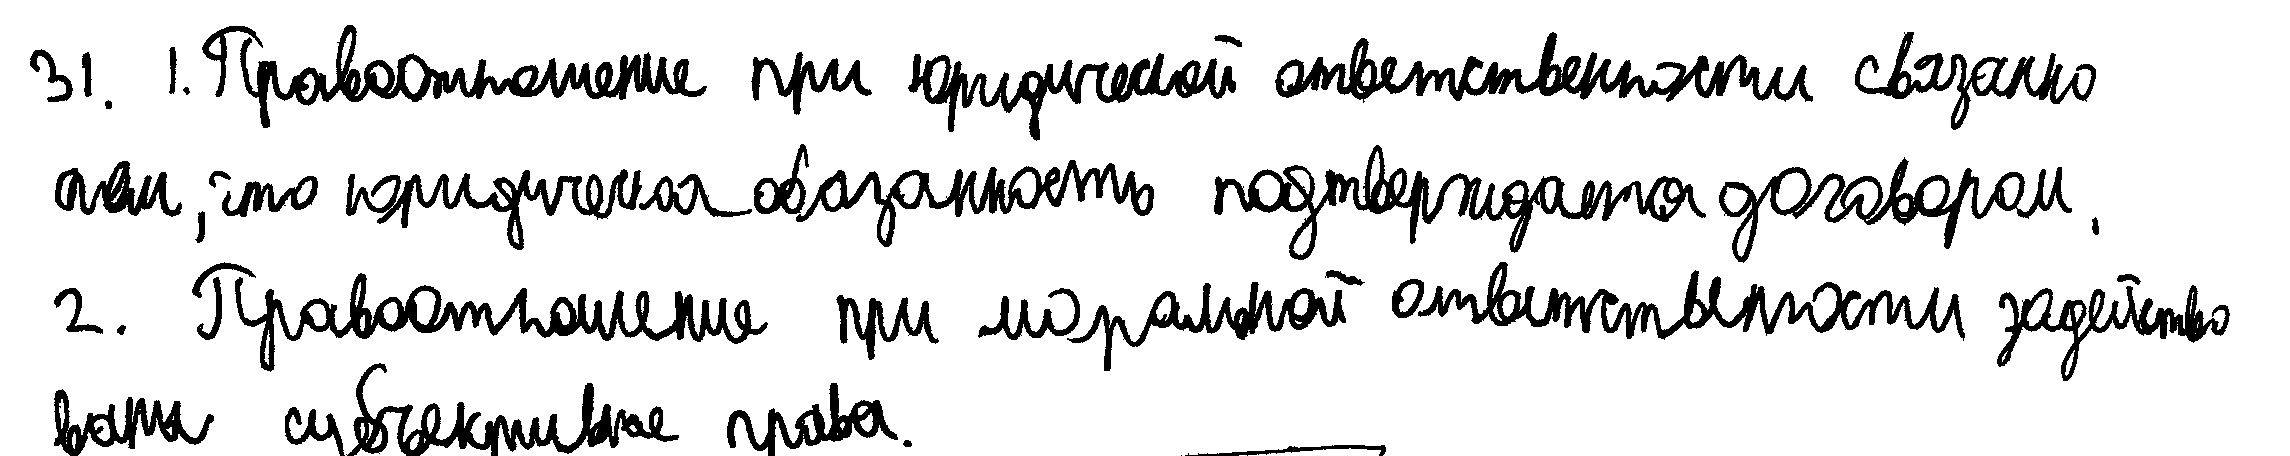 31. 1. Правоотношение при юридической ответственности связанно
тем, что юридическая обязанность подтверждается договором.
2. Правоотношение при моральной ответственности задейство
ваны субъективные права.